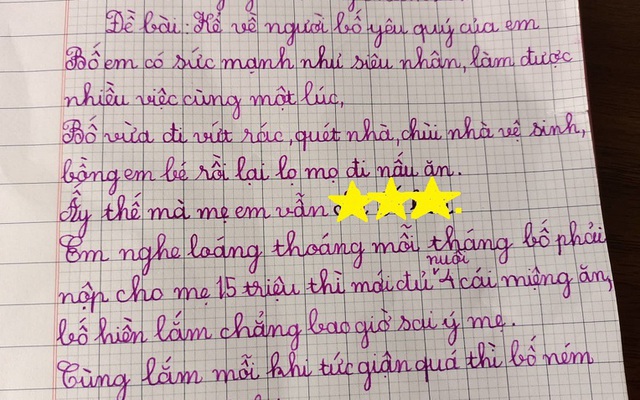 Đề bài: Kể về người bố yêu quý của em
Bố em có sức mạnh như siêu nhân, làm được
nhiều việc cùng một lúc,
Bố vừa đi vứt rác, quét nhà, chùi nhà vệ sinh,
bồng em bé rồi lại lọ mọ đi nấu ăn.
Ấy thế mà mẹ em vẫn
Em nghe loáng thoáng mỗi tháng bố phải
nộp cho mẹ 15 triệu thì mới đủ nuôi 4 cái miệng ăn,
bố hiền lắm chẳng bao giờ sai ý mẹ.
Cùng lắm mỗi khi tức giận quá thì bố ném